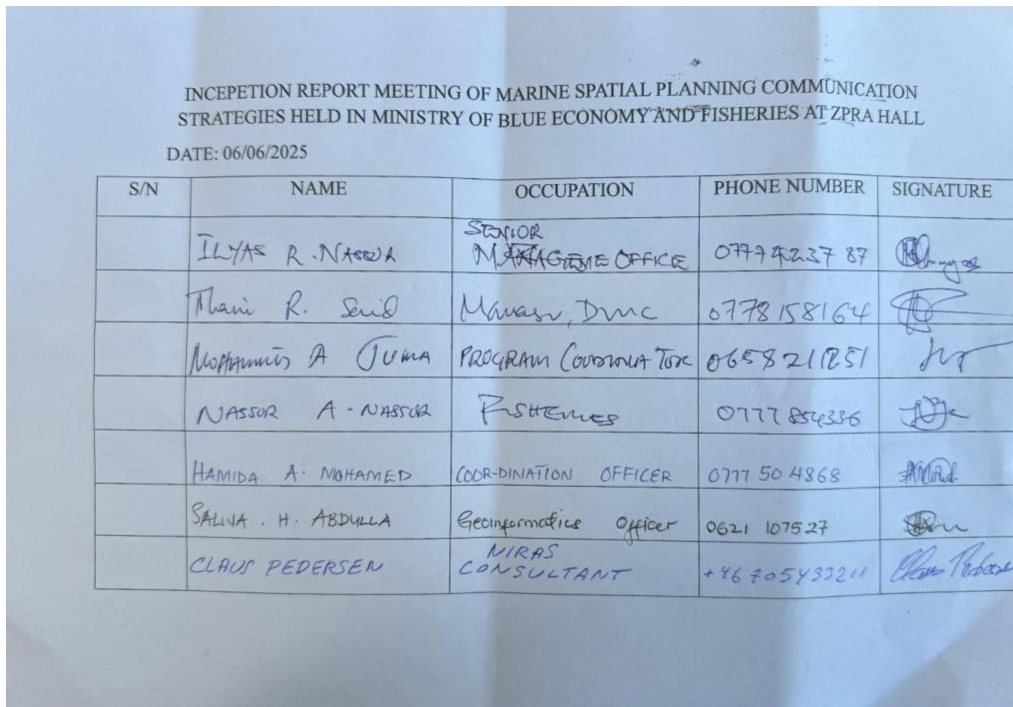 INCEPETION REPORT MEETING OF MARINE SPATIAL PLANNING COMMUNICATION
STRATEGIES HELD IN MINISTRY OF BLUE ECONOMY AND FISHERIES AT ZPRA HALL
DATE: 06/06/2025
S/N NAME OCCUPATION PHONE NUMBER SIGNATURE
ILYAS R. NASSOR SENIOR
OFFICE 0777423787
Thani R. Said 0778158164
A JUMA PROGRAM
NASSOR A. NASSOR 0777854336
HAMIDA A. MOHAMED COOR-DINATION OFFICER 0777 50 4868
H. ABDULLA Geoinformatics Officer 0621 107527
CLAUS PEDERSEN NIRAS
CONSULTANT +46 705433211